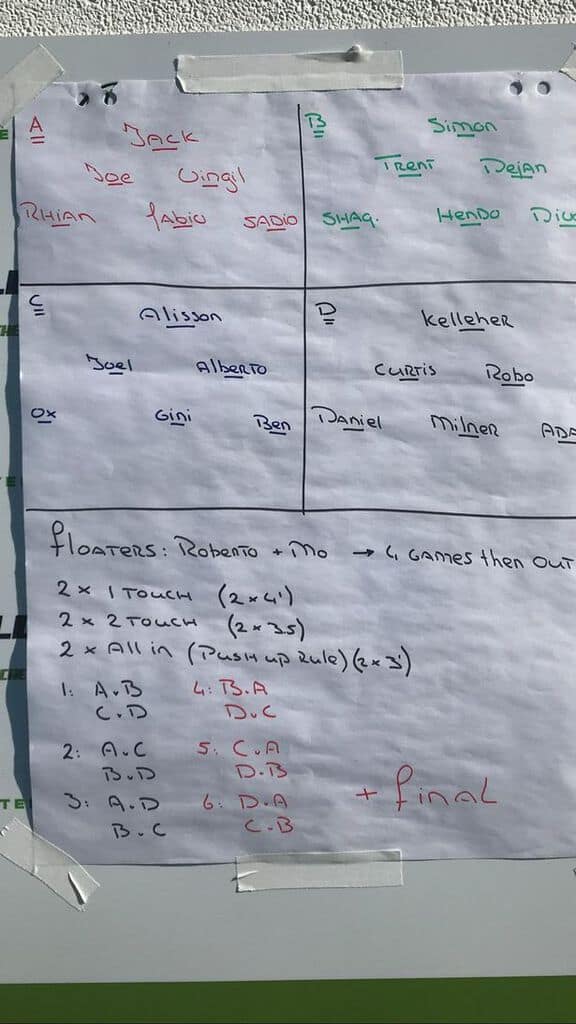 A
Jack
Joe Virgil
Rhian Fabio Sadio
B
Simon
Trent Dejan
Shaq. Hendo
C
Alisson
Joel Alberto
Ox Gini Ben
D
Kelleher
Curtis Robo
Daniel Milner
Floaters: Roberto + Mo → 4 games then out
2 x 1 Touch (2x4')
2 x 2 Touch (2x35)
2 x All in (Push up Rule) (2x3')
1: A.B 4: B.A
C.D D.C
2: A.C 5: C.A
B.D D.B
3: A.D 6: D.A
B.C C.B
+ final